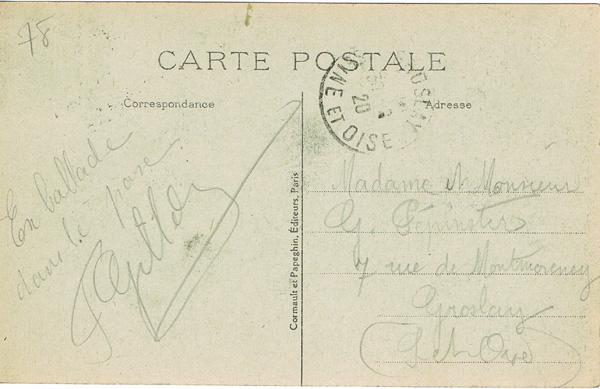 78
CARTE POSTALE
Correspondance
Adresse
SEINE ET OISE
20
En ballade
dans le parc
Cormault et Papeghin, Éditeurs, Paris
Madame et Monsieur
G. Pépinster
7 rue de Montmorency
Groslay
S et Oise